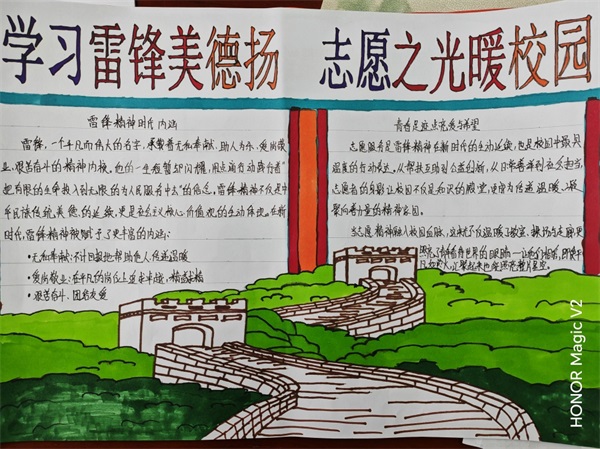 学习雷锋美德扬 志愿之光暖校园
雷锋精神时代内涵
雷锋，一个平凡而伟大的名字，承载着无私奉献、助人为乐、爱岗敬
业、艰苦奋斗的精神内核。他的一生短暂却闪耀，用点滴行动践行着"
把有限的生命投入到无限的为人民服务中去"的信念。雷锋精神不仅是中
华民族传统美德的延续，更是社会主义核心价值观的生动体现。在新
时代，雷锋精神被赋予了更丰富的内涵：
•无私奉献：不计回报地帮助他人，传递温暖
•爱岗敬业：在平凡的岗位上追求卓越，精益求精
•艰苦奋斗、团结友爱
青春足迹点亮爱与希望
志愿服务是雷锋精神在新时代的生动延续，也是校园中最具
温度的行动表达。从帮扶互助到公益创新，从日常善举到社会担当，
志愿者的身影让校园不仅是知识的殿堂，更成为传递温暖、凝
聚向善力量的精神家园。
志愿精神融入校园血脉，
HONOR Magic V2